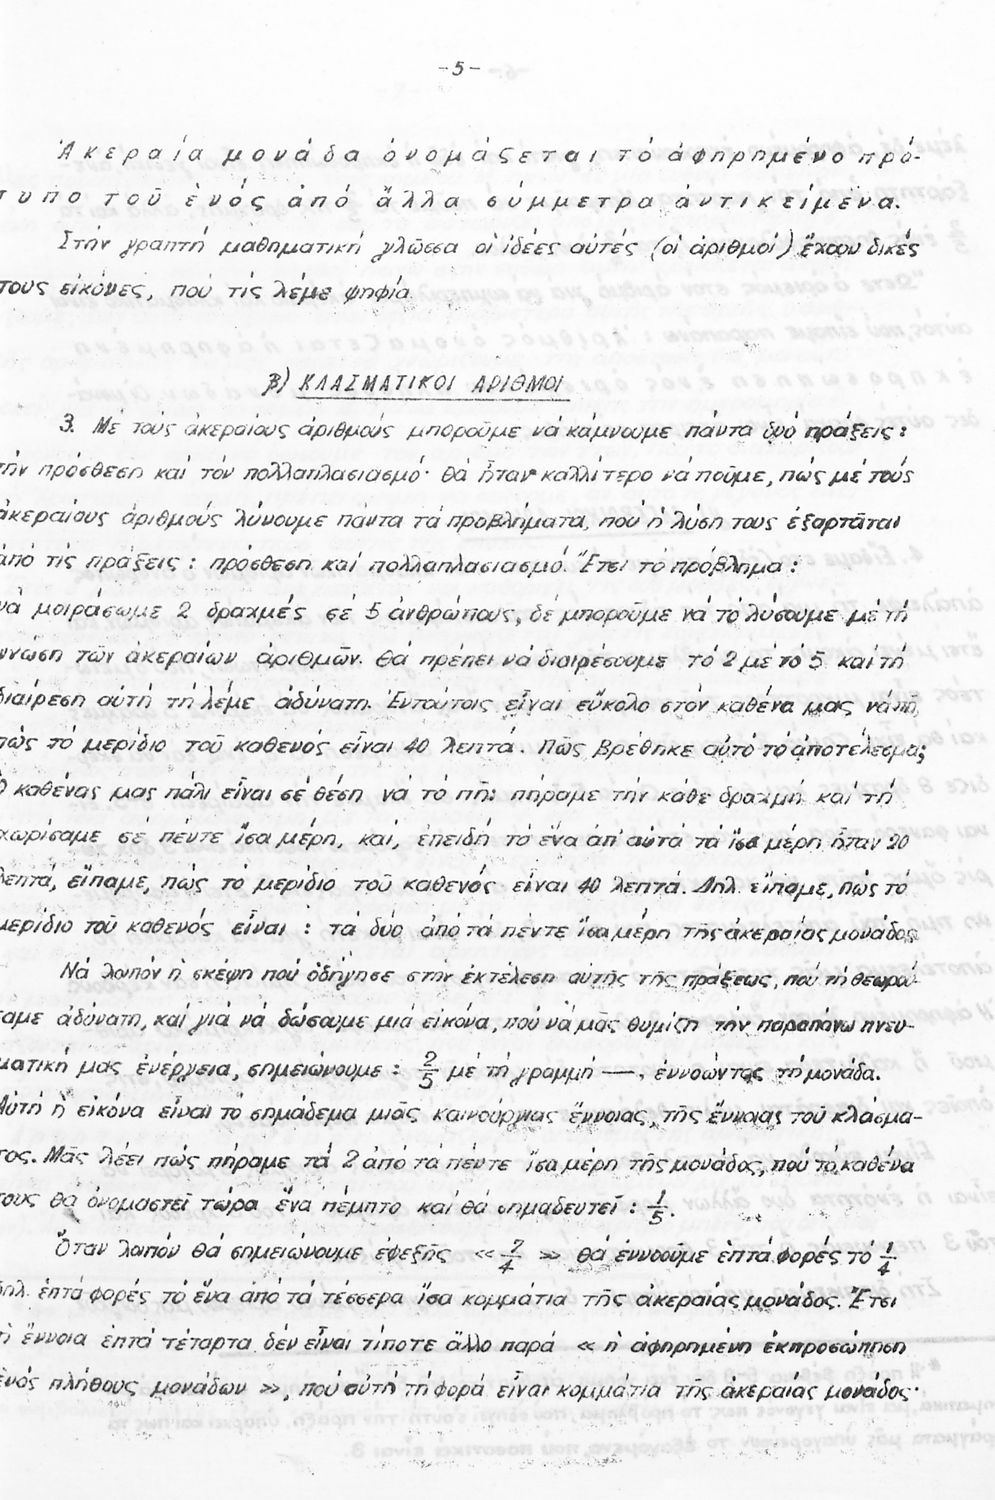 -5-
Ἀκεραία μονάδα ὀνομάζεται τό ἀφηρημένο πρό-
τυπο τοῦ ἑνός ἀπό ἄλλα σύμμετρα ἀντικείμενα.
Στήν γραπτή μαθηματική γλῶσσα οἱ ἰδέες αὐτές (οἱ ἀριθμοί) ἔχουν δικές
τους εἰκόνες, πού τίς λέμε ψηφία.
β) ΚΛΑΣΜΑΤΙΚΟΙ ΑΡΙΘΜΟΙ
3. Μέ τούς ἀκεραίους ἀριθμούς μποροῦμε νά κάμνουμε πάντα δυό πράξεις:
τήν πρόσθεση καί τόν πολλαπλασιασμό· θά ἦταν καλλίτερο νά ποῦμε, πώς μέ τούς
ἀκεραίους ἀριθμούς λύνουμε πάντα τά προβλήματα, πού ἡ λύση τους ἐξαρτᾶται
ἀπό τίς πράξεις: πρόσθεση καί πολλαπλασιασμό. Ἔτσι τό πρόβλημα:
νά μοιράσωμε 2 δραχμές σέ 5 ἀνθρώπους, δέ μποροῦμε νά τό λύσουμε μέ τή
γνώση τῶν ἀκεραίων ἀριθμῶν. Θά πρέπει νά διαιρέσουμε τό 2 μέ τό 5 καί τή
διαίρεση αὐτή τή λέμε ἀδύνατη. Ἐντούτοις εἶναι εὔκολο στόν καθένα μας νά πῆ,
πώς τό μερίδιο τοῦ καθενός εἶναι 40 λεπτά. Πῶς βρέθηκε αὐτό τό ἀποτέλεσμα;
Ὁ καθένας μας πάλι εἶναι σέ θέση νά τό πῆ: πήραμε τήν κάθε δραχμή καί τή
χωρίσαμε σέ πέντε ἴσα μέρη, καί, ἐπειδή τό ἕνα ἀπ' αὐτά τά ἴσα μέρη ἦταν 20
λεπτά, εἴπαμε, πώς τό μερίδιο τοῦ καθενός εἶναι 40 λεπτά. Δηλ. εἴπαμε, πώς τό
μερίδιο τοῦ καθενός εἶναι: τά δύο ἀπό τά πέντε ἴσα μέρη τῆς ἀκεραίας μονάδος.
Νά λοιπόν ἡ σκέψη πού ὁδήγησε στήν ἐκτέλεση αὐτῆς τῆς πράξεως, πού τή θεωρού-
σαμε ἀδύνατη, καί γιά νά δώσουμε μιά εἰκόνα, πού νά μᾶς θυμίζη τήν παραπάνω πνευ-
ματική μας ἐνέργεια, σημειώνουμε: 2/5 μέ τή γραμμή —, ἐννοώντας τή μονάδα.
Αὐτή ἡ εἰκόνα εἶναι τό σημάδεμα μιᾶς καινούργιας ἔννοιας, τῆς ἔννοιας τοῦ κλάσμα-
τος. Μᾶς λέει πώς πήραμε τά 2 ἀπό τά πέντε ἴσα μέρη τῆς μονάδος, πού τό καθένα
τους θά ὀνομαστεῖ τώρα ἕνα πέμπτο καί θά σημαδευτεῖ: 1/5.
Ὅταν λοιπόν θά σημειώνουμε ἐφεξῆς «7/4» θά ἐννοοῦμε ἑπτά φορές τό 1/4
δηλ. ἑπτά φορές τό ἕνα ἀπό τά τέσσερα ἴσα κομμάτια τῆς ἀκεραίας μονάδος. Ἔτσι
ἡ ἔννοια ἑπτά τέταρτα δέν εἶναι τίποτε ἄλλο παρά « ἡ ἀφηρημένη ἐκπροσώπηση
ἑνός πλήθους μονάδων », πού αὐτή τή φορά εἶναι κομμάτια τῆς ἀκεραίας μονάδος·